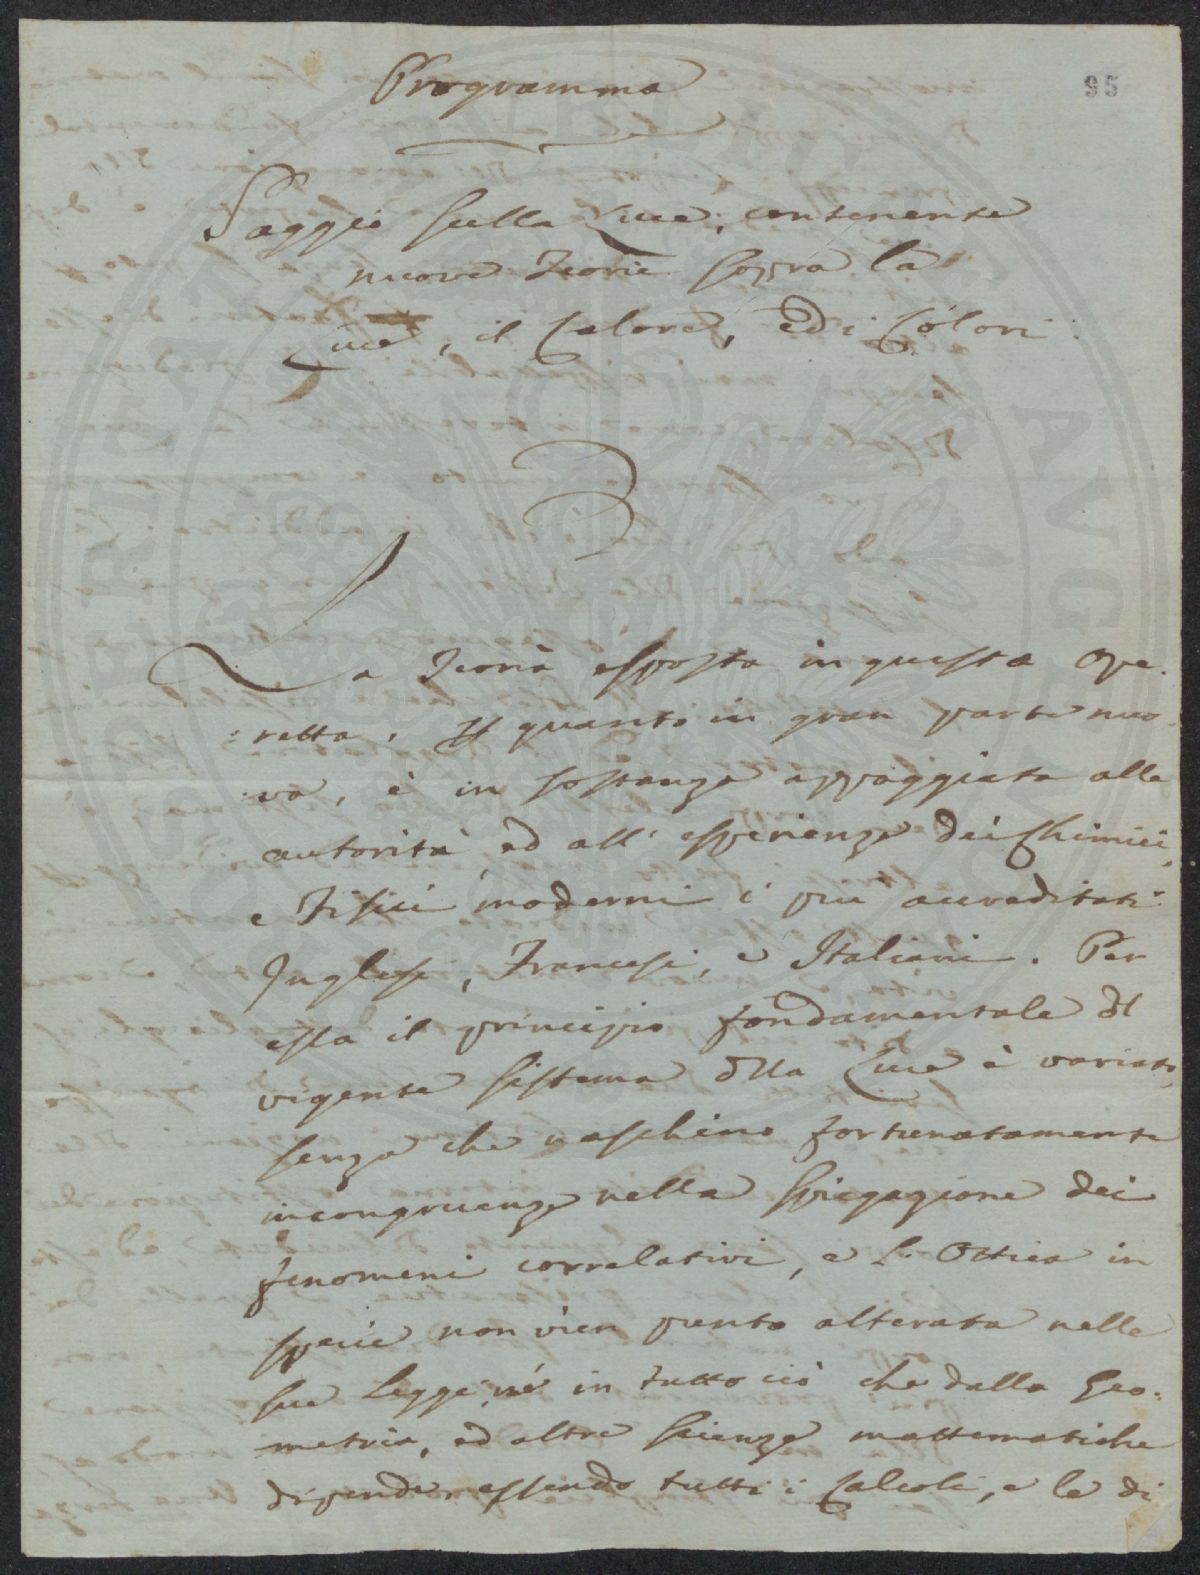 95
Programma
Saggio sulla Luce, contenente
nuove Teorie sopra la
Luce, il Calore, ed i Colori
La Teoria esposta in questa Ope-
retta, quanto in gran parte nuo-
va, è in sostanza appoggiata alla
autorità ed all' esperienze dei Chimici,
e Fisici moderni i più accreditati
Inglesi, Francesi, e Italiani. Per
essa il principio fondamentale del
vigente sistema della Luce è variato,
senza che naschino fortunatamente
incongruenze nella spiegazione dei
fenomeni correlativi, e l'Ottica in
specie non vien punto alterata nelle
sue Leggi, nè in tutto ciò che dalla Geo-
metria, ed altre scienze mattematiche
dipende, essendo tutti i Calcoli, e le di